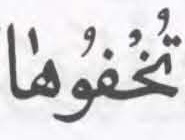 تُخْفُوهٰا